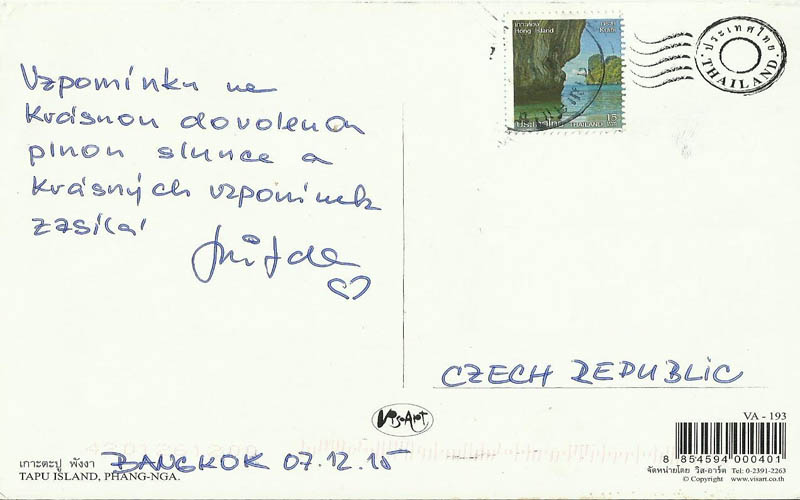 Vzpomínku na
krásnou dovolenou
plnou slunce a
krásných vzpomínek
zasílá
CZECH REPUBLIC
BANGKOK 07.12.15
เกาะตะปู พังงา
TAPU ISLAND, PHANG-NGA.
VisArt
VA - 193
8 854594 000401
จัดหน่ายโดย วิส-อาร์ต Tel: 0-2391-2263
© Copyright www.visart.co.th
เกาะห้อง
Hong Island
กระบี่
Krabi
ประเทศไทย THAILAND
15
ประเทศไทย
THAILAND